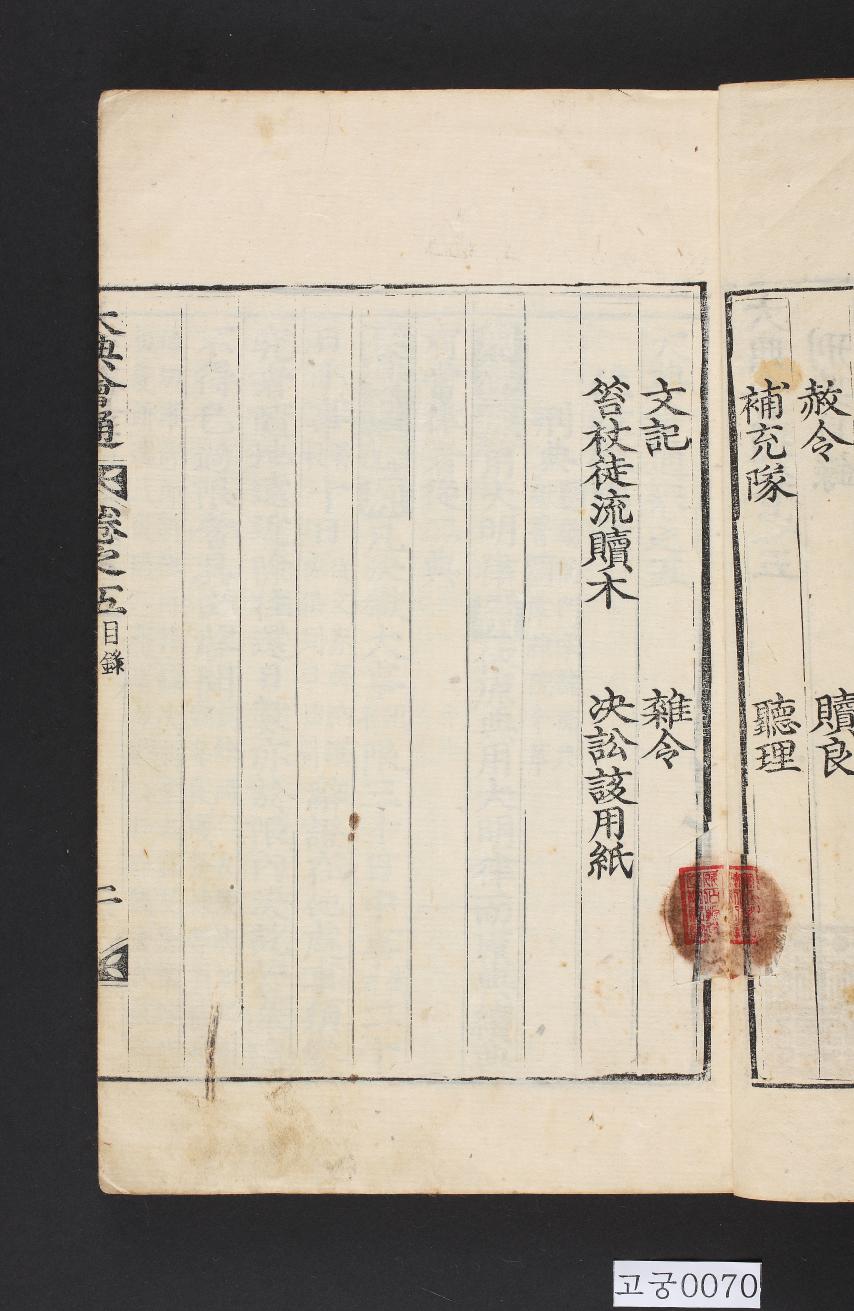 赦令 贖良
補充隊 聽理
文記 雜令
笞杖徒流贖木 决訟該用紙
大典會通 卷之五 目錄 二
고궁0070